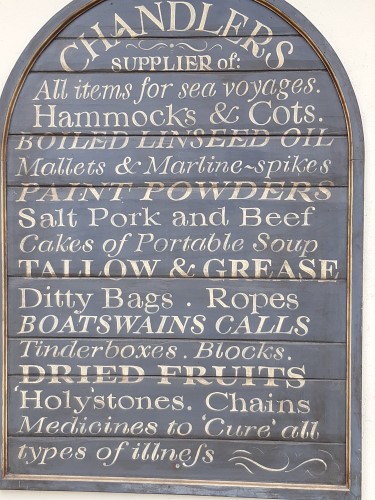 CHANDLERS
SUPPLIER of:
All items for sea voyages.
Hammocks & Cots.
BOILED LINSEED OIL
Mallets & Marline-spikes
PAINT POWDERS
Salt Pork and Beef
Cakes of Portable Soup
TALLOW & GREASE
Ditty Bags . Ropes
BOATSWAINS CALLS
Tinderboxes . Blocks.
DRIED FRUITS
'Holy'stones. Chains
Medicines to 'Cure' all
types of illneſs